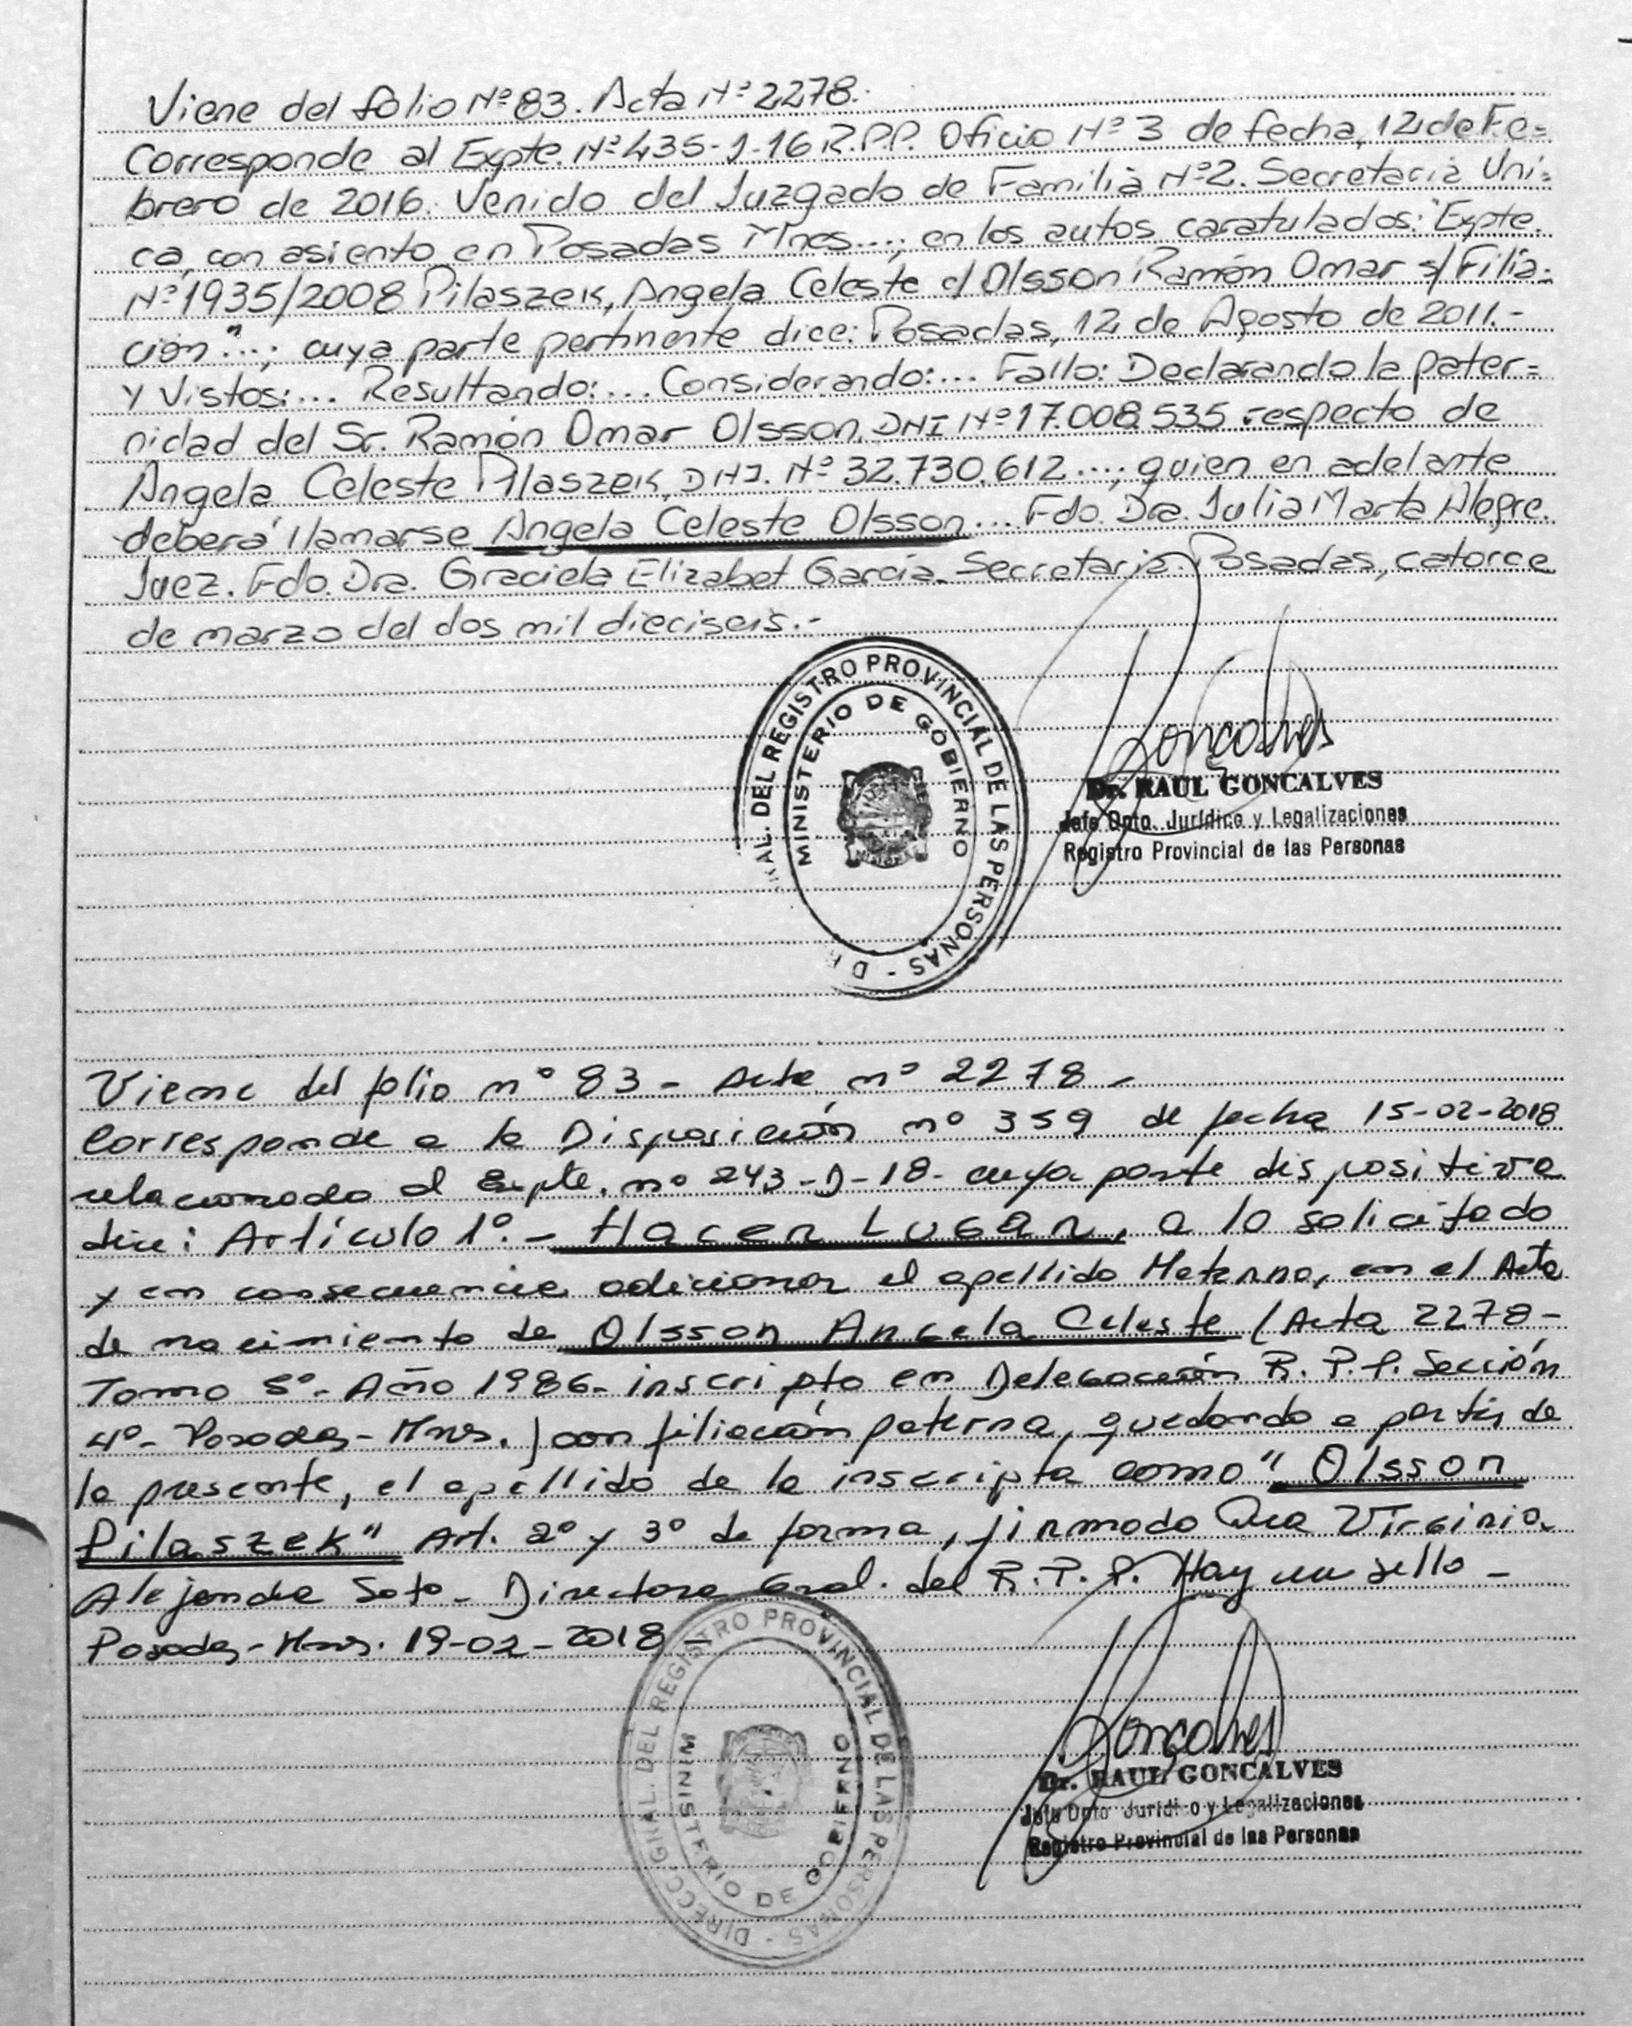 Viene del folio Nº 83. Acta Nº 2278.-
Corresponde al Expte. Nº 435-J-16 R.P.P. Oficio Nº 3 de fecha, 12 de Fe=
brero de 2016. Venido del Juzgado de Familia Nº2. Secretaria Uni=
ca, con asiento en Posadas Mnes...; en los autos caratulados: "Expte.
Nº 1935/2008 Pilaszek, Angela Celeste c/ Olsson Ramón Omar s/ Filia=
ción"...; cuya parte pertinente dice: Posadas, 12 de Agosto de 2011.-
Y Vistos:... Resultando:... Considerando:... Fallo: Declarando la pater=
nidad del Sr. Ramón Omar Olsson, DNI Nº 17.008.535 respecto de
Angela Celeste Pilaszek, DNI. Nº 32.730.612...; quien en adelante
deberá llamarse Angela Celeste Olsson... Fdo. Dra. Julia Marta Alegre.
Juez. Fdo. Dra. Graciela Elizabet García. Secretaria. Posadas, catorce
de marzo del dos mil dieciseis.-
RAL. DEL REGISTRO PROVINCIAL DE LAS PERSONAS - DI
MINISTERIO DE GOBIERNO
Goncalves
Dr. RAUL GONCALVES
Jefe Dpto. Jurídico y Legalizaciones
Registro Provincial de las Personas
Viene del folio nº 83 - Acta nº 2278 -
Corresponde a la Disposición nº 359 de fecha 15-02-2018
relacionado al Expte. nº 243-D-18- cuya parte dispositiva
dice: Artículo 1º.- HACER LUGAR, a lo solicitado
y en consecuencia adicionar el apellido Materno, en el Acta
de nacimiento de Olsson Angela Celeste (Acta 2278-
Tomo 5º- Año 1986- inscripto en Delegación R.P.P. Sección
4º- Posadas- Mnes.) con filiación paterna, quedando a partir de
la presente, el apellido de la inscripta como "Olsson
Pilaszek" Art. 2º y 3º de forma, firmado Dra Virginia
Alejandra Soto - Directora Gral. del R.P.P. Hay un sello -
Posadas- Mnes. 19-02-2018
DIRECC. GRAL. DEL REGISTRO PROVINCIAL DE LAS PERSONAS -
MINISTERIO DE GOBIERNO
Goncalves
Dr. RAUL GONCALVES
Jefe Dpto Jurídico y Legalizaciones
Registro Provincial de las Personas